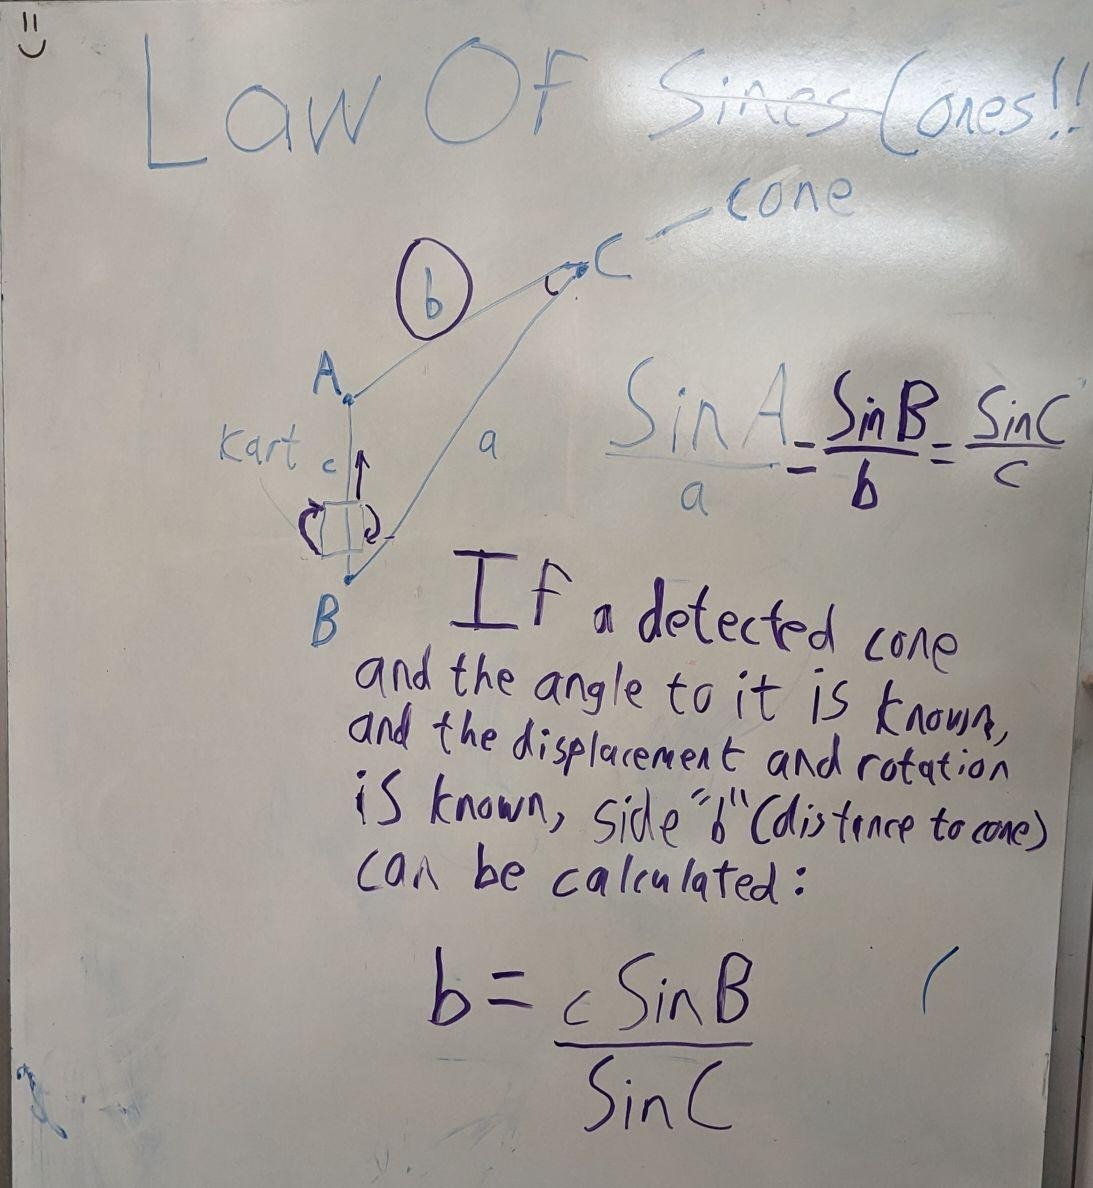 Law Of Sines Cones!!
cone
C
b
A
Kart
c
a
B
Sin A / a = Sin B / b = Sin C / c
If a detected cone
and the angle to it is known,
and the displacement and rotation
is known, side "b" (distance to cone)
can be calculated:
b = c Sin B / Sin C